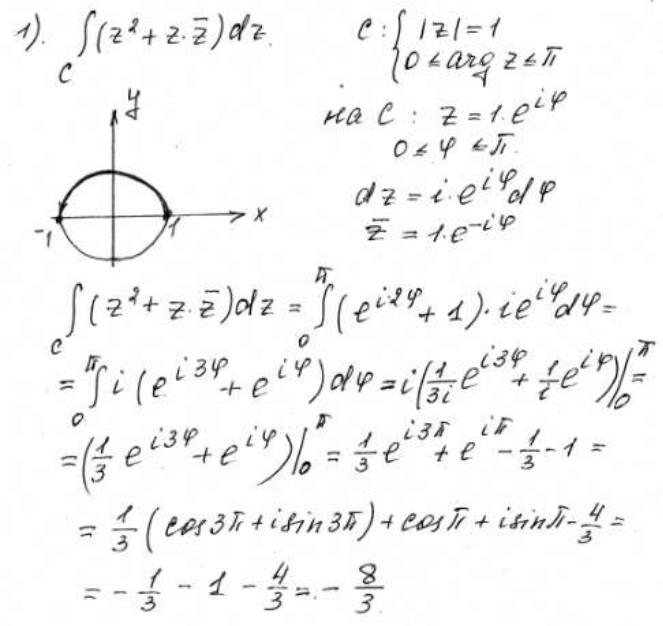 1). ∫_C (z² + z·z̄)dz.   C: { |z|=1
0 ≤ arg z ≤ π
на C : z = 1·e^{iφ}
0 ≤ φ ≤ π.
dz = i·e^{iφ}dφ
z̄ = 1·e^{-iφ}
y
-1 1 x
∫_C (z² + z·z̄)dz = ∫_0^π (e^{i2φ} + 1)·ie^{iφ}dφ =
= ∫_0^π i(e^{i3φ} + e^{iφ})dφ = i(1/(3i) e^{i3φ} + 1/i e^{iφ})|_0^π =
= (1/3 e^{i3φ} + e^{iφ})|_0^π = 1/3 e^{i3π} + e^{iπ} - 1/3 - 1 =
= 1/3 (cos3π + i sin3π) + cosπ + i sinπ - 4/3 =
= - 1/3 - 1 - 4/3 = - 8/3